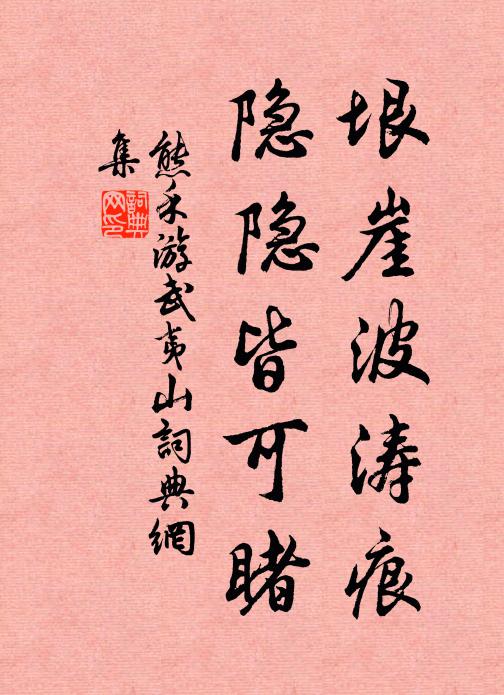 垠崖波涛痕
隐隐皆可睹
熊禾游武夷山詞典網
集
詞典网印